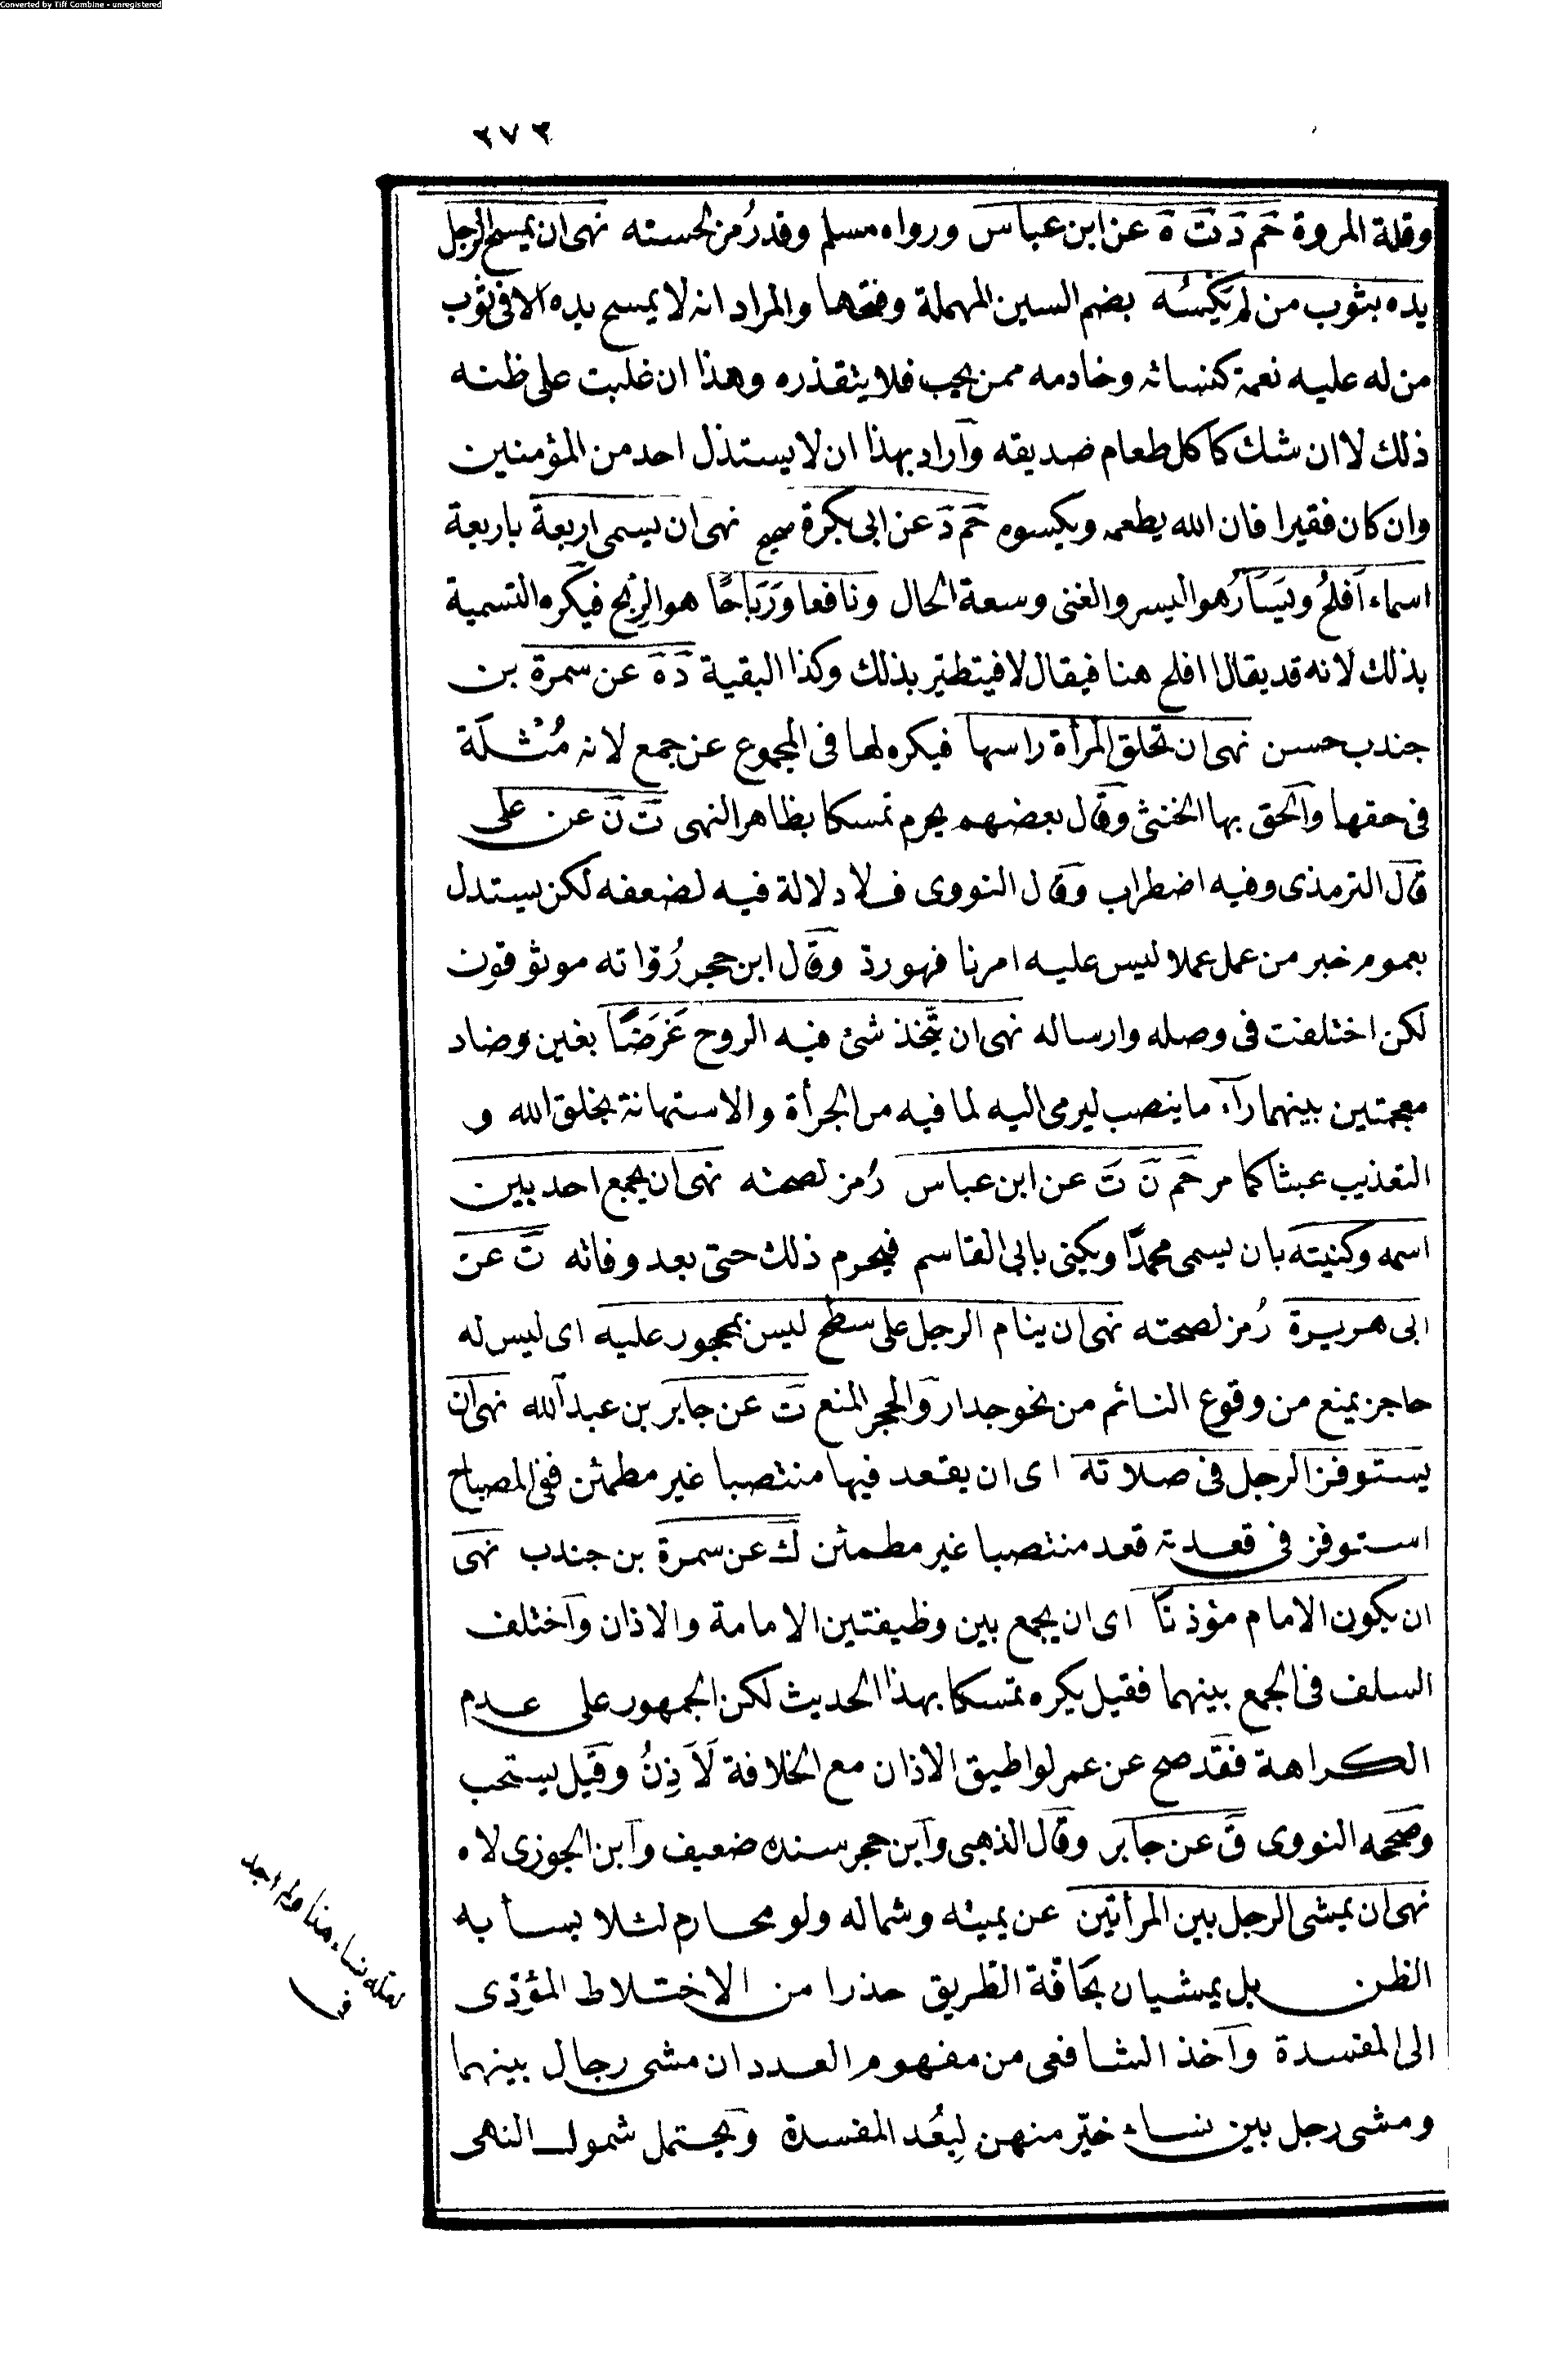 Converted by Tiff Combine - unregistered
٢٧٣
وقلة المروة حَم دَ تَ هَ عن ابن عباس ورواه مسلم وقد رُمز لحسنه نهى ان يمسح الرجل
يده بثوب من لم يَكْسُه بضم السين المهملة وفتحها والمراد انه لا يمسح يده الا فى ثوب
من له عليه نعمة كنسائه وخادمه ممن يحب فلا يتقذره وهذا ان غلبت على ظنه
ذلك لا ان شك كأكل طعام صديقه وآراد بهذا ان لا يستذل احد من المؤمنين
وان كان فقيرا فان الله يطعمه ويكسوه حَم دَ عن ابى بكرة صحيح نهى ان يسمى اربعة باربعة
اسماء افلحُ ويَسَارُ هو اليسر والغنى وسعة الحال ونافعا ورَبَاحًا هو الرِبْح فيكره التسمية
بذلك لانه قد يقال افلح هنا فيقال لا فيتطيّر بذلك وكذا البقية دَ هَ عن سمرة بن
جندب حسن نهى ان تحلق المرأة راسها فيكره لها فى المجموع عن جمع لانه مُثْلَة
فى حقها وآلحق بها الخنثى وقال بعضهم يحرم تمسكا بظاهر النهى تَ نَ عن على
قال الترمذى وفيه اضطراب وقال النووى فلا دلالة فيه لضعفه لكن يستدل
بعموم خبر من عمل عملا ليس عليه امرنا فهو ردّ وقال ابن حجر رُواته موثوقون
لكن اختلفت فى وصله وارساله نهى ان يتّخذ شئ فيه الروح غَرَضًا بغين وضاد
معجمتين بينهما رآء ما ينصب ليرمى اليه لما فيه من الجرأة والاستهانة بخلق الله و
التعذيب عبثا كما مر حَم نَ تَ عن ابن عباس رُمز لصحته نهى ان يجمع احد بين
اسمه وكنيته بان يسمى محمدًا ويكنى بابى القاسم فيحرم ذلك حتى بعد وفاته تَ عن
ابى هريرة رُمز لصحته نهى ان ينام الرجل على سطح ليس بمحجور عليه اى ليس له
حاجز يمنع من وقوع النائم من نحو جدار وَالحجر المنع تَ عن جابر بن عبد الله نهى ان
يستوفز الرجل فى صلاته اى ان يقعد فيها منتصبا غير مطمئن ففى المصباح
استوفز فى قعدته قعد منتصبا غير مطمئن كَ عن سمرة بن جندب نهى
ان يكون الامام مؤذنًا اى ان يجمع بين وظيفتين الامامة والاذان وآختلف
السلف فى الجمع بينهما فقيل يكره تمسكا بهذا الحديث لكن الجمهور على عدم
الكراهة فقد صح عن عمر لو اطيق الاذان مع الخلافة لَاَذِنُ وقيل يستحب
وصَححه النووى قَ عن جابر وقال الذهبى وآبن حجر سنده ضعيف وآبن الجوزى لاه
نهى ان يمشى الرجل بين المرأتين عن يمينه وشماله ولو محارم لئلا يسأ به
الظن بل يمشيان بحَافّة الطريق حذرا من الاختلاط المؤدّى
الى المفسدة وآخذ الشافعى من مفهوم العدد ان مشى رجال بينهما
ومشى رجل بين نساء خيّر منهن لِبُعد المفسدة ويحتمل شمول النهى